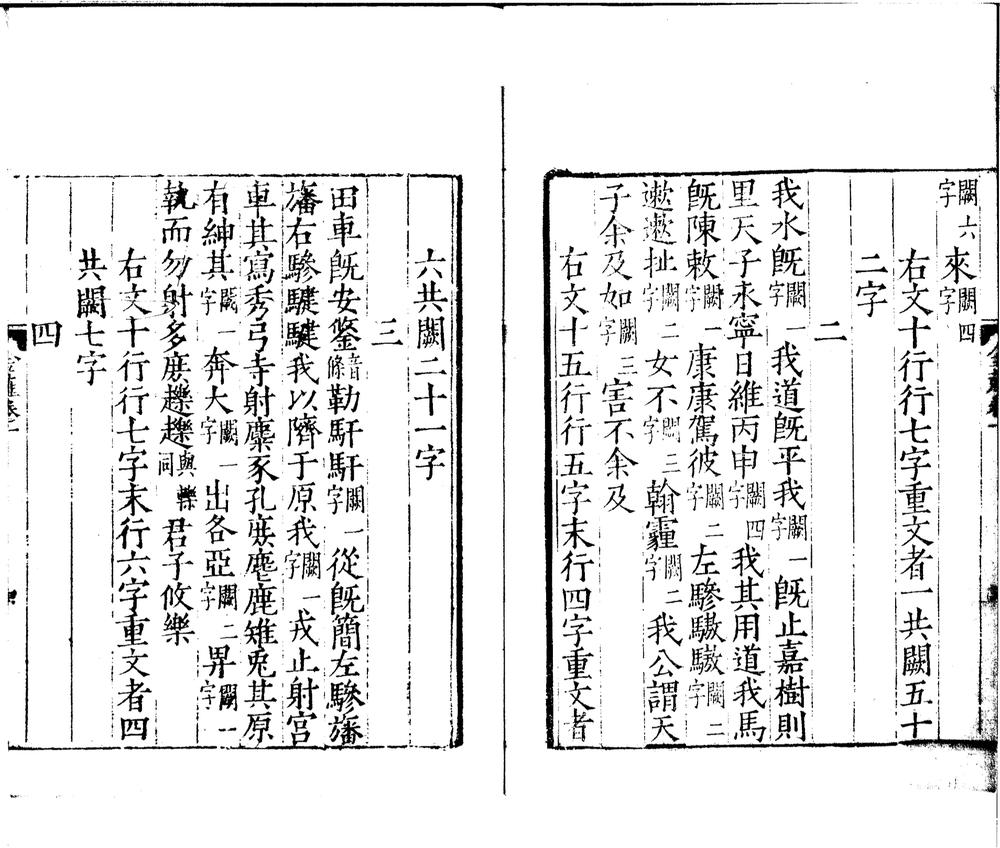 闕六字來闕四字
右文十行行七字重文者一共闕五十
二字
二
我水旣闕一字我道旣平我闕一字旣止嘉樹則
里天子永寧日維丙申闕四字我其用道我馬
旣陳敕闕一字康康駕彼闕二字左驂驐驐闕二字
遬遬扯闕二字女不闕三字翰霾闕二字我公謂天
子余及如闕三字害不余及
右文十五行行五字末行四字重文者
六共闕二十一字
三
田車旣安鋚音條勒馯馯闕一字從旣簡左驂旛
旛右驂騝騝我以隮于原我闕一字戎止射宮
車其寫秀弓寺射麋豕孔庶麀鹿雉兎其原
有紳其闕一字奔大闕一字出各亞闕二字畀闕一字
執而勿射多庶趮趮與轢同君子攸樂
右文十行行七字末行六字重文者四
共闕七字
四